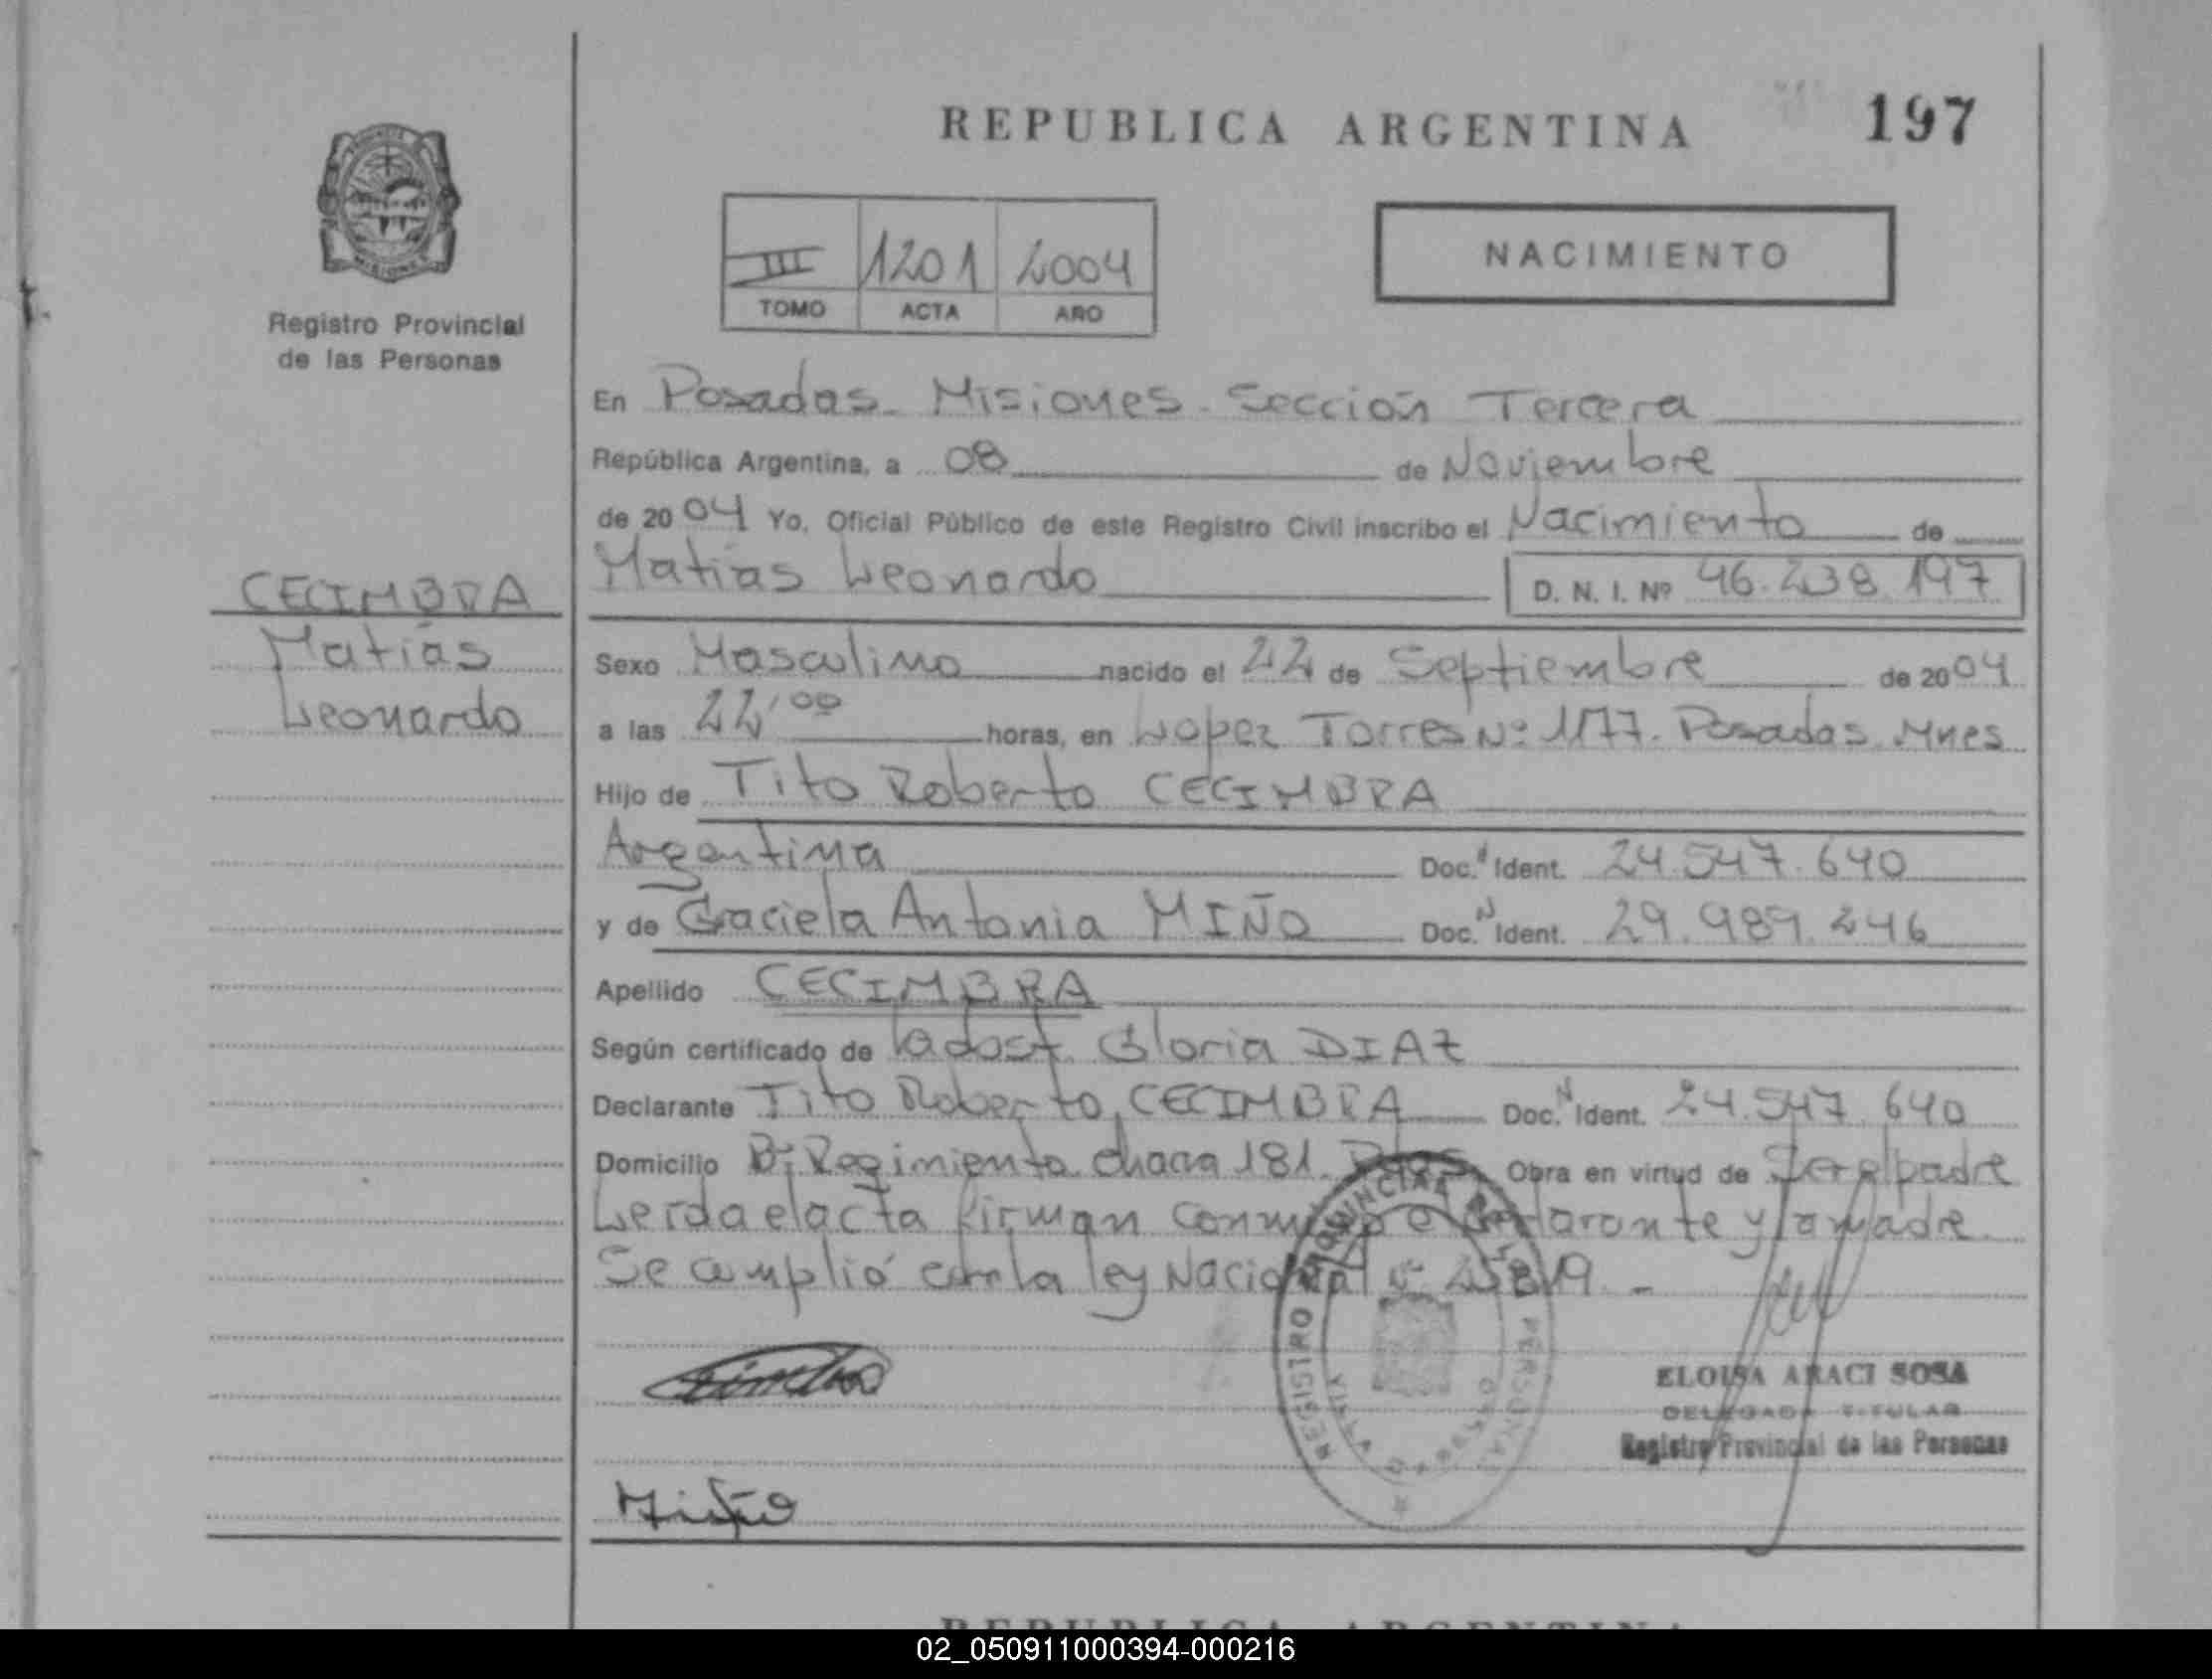 REPUBLICA ARGENTINA
197
MISIONES
Registro Provincial
de las Personas
III 1201 2004
TOMO ACTA AÑO
NACIMIENTO
En Posadas. Misiones. Sección Tercera
República Argentina, a 08 de Noviembre
de 2004 Yo, Oficial Público de este Registro Civil inscribo el Nacimiento de
Matias Leonardo D. N. I. Nº 46.238.197
CECIMBRA
Matias
Leonardo
Sexo Masculino nacido el 22 de Septiembre de 2004
a las 22,00 horas, en Lopez Torres Nº 1177. Posadas. Mnes
Hijo de Tito Roberto CECIMBRA
Argentina Doc. Ident. 24.547.640
y de Graciela Antonia MIÑO Doc. N Ident. 29.989.246
Apellido CECIMBRA
Según certificado de Gloria DIAZ
Declarante Tito Roberto CECIMBRA Doc. N Ident. 24.547.640
Domicilio Bº Regimiento chacra 181. Pdas Obra en virtud de Ser el padre
Leida el acta firman conmigo el declarante y la madre.
Se cumplió con la ley Nacional Nº 25819. -
REGISTRO PROVINCIAL DE LAS PERSONAS
ELOISA ARACI SOSA
DELEGADA TITULAR
Registro Provincial de las Personas
Miño
REPUBLICA ARGENTINA
02_050911000394-000216